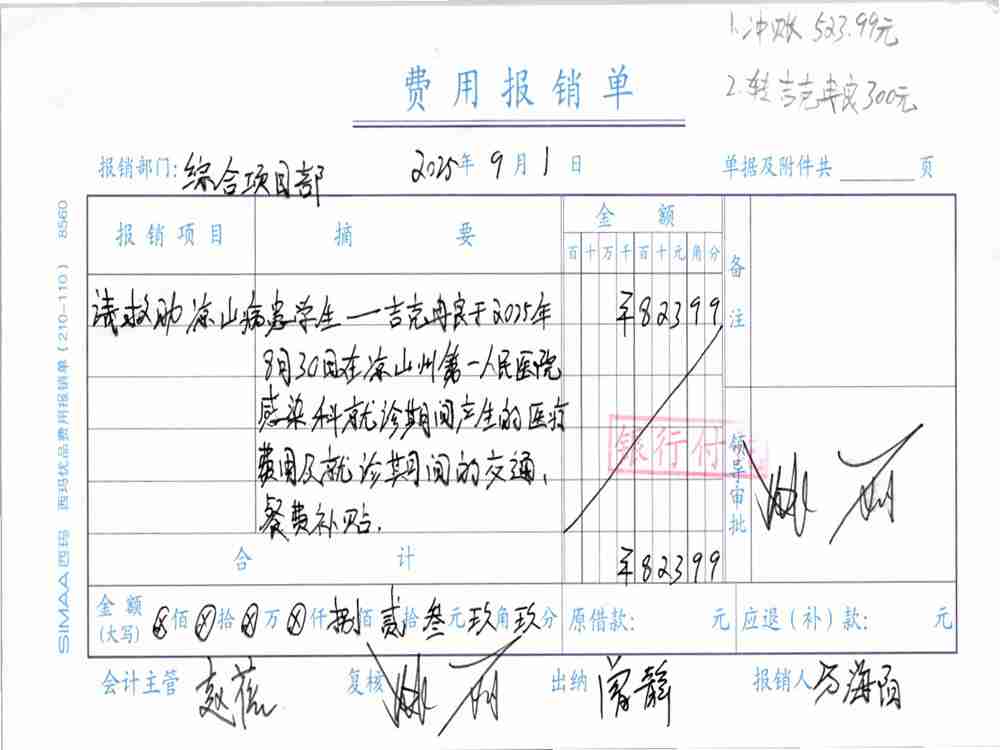 1.冲账 523.99元
2.转吉克冉良300元
费用报销单
报销部门:综合项目部 2025年9月1日 单据及附件共 页
报销项目 摘要 金额 备注
百十万千百十元角分
请救助凉山病患学生—吉克冉良于2025年 ¥82399
8月30日在凉山州第一人民医院
感染科就诊期间产生的医疗
费用及就诊期间的交通、
餐费补贴.
银行付
领导审批
合计 ¥82399
金额(大写) ⊗佰⊗拾⊗万⊗仟捌佰贰拾叁元玖角玖分 原借款: 元 应退(补)款: 元
会计主管 复核 出纳 曾静 报销人
SIMAA西玛 西玛优品费用报销单(210-110) 8560